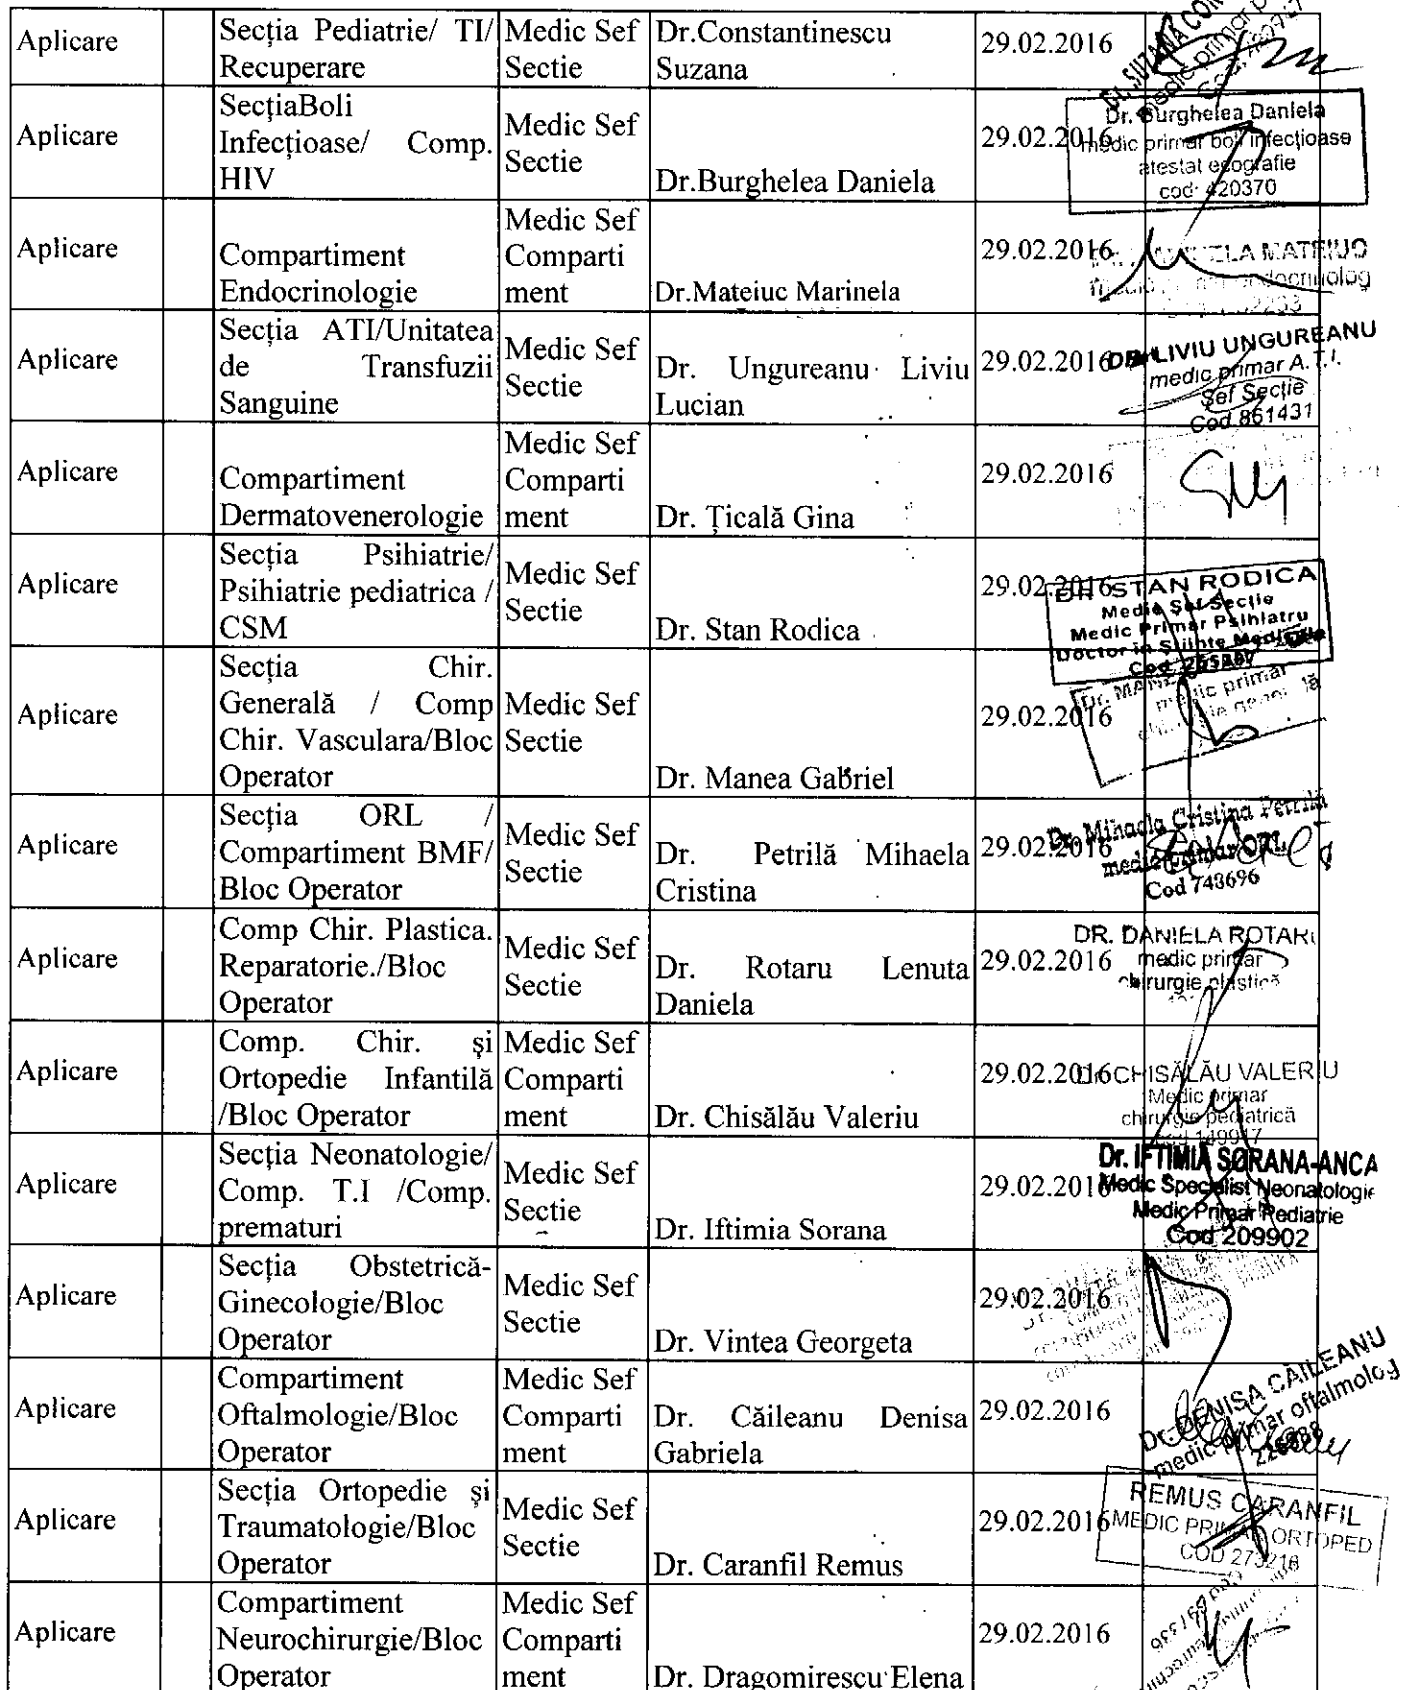 Aplicare
Secția Pediatrie/ TI/
Recuperare
Medic Sef
Sectie
Dr.Constantinescu
Suzana
29.02.2016
Dr. SUZANA
medic primar
Aplicare
SecțiaBoli
Infecțioase/ Comp.
HIV
Medic Sef
Sectie
Dr.Burghelea Daniela
29.02.2016
Dr. Burghelea Daniela
medic primar boli infecțioase
atestat ecografie
cod: 420370
Aplicare
Compartiment
Endocrinologie
Medic Sef
Comparti
ment
Dr.Mateiuc Marinela
29.02.2016
MATEIUC
endocrinolog
Aplicare
Secția ATI/Unitatea
de Transfuzii
Sanguine
Medic Sef
Sectie
Dr. Ungureanu Liviu
Lucian
29.02.2016
LIVIU UNGUREANU
medic primar A.T.I.
Șef Secție
Cod 861431
Aplicare
Compartiment
Dermatovenerologie
Medic Sef
Comparti
ment
Dr. Țicală Gina
29.02.2016
Aplicare
Secția Psihiatrie/
Psihiatrie pediatrica /
CSM
Medic Sef
Sectie
Dr. Stan Rodica
29.02.2016
DR STAN RODICA
Medic Șef Secție
Medic Primar Psihiatru
Doctor în Științe Medicale
Cod
Aplicare
Secția Chir.
Generală / Comp
Chir. Vasculara/Bloc
Operator
Medic Sef
Sectie
Dr. Manea Gabriel
29.02.2016
Dr.
medic primar
Aplicare
Secția ORL /
Compartiment BMF/
Bloc Operator
Medic Sef
Sectie
Dr. Petrilă Mihaela
Cristina
29.02.2016
Dr. Mihaela Cristina Petrilă
medic primar ORL
Cod 743696
Aplicare
Comp Chir. Plastica.
Reparatorie./Bloc
Operator
Medic Sef
Sectie
Dr. Rotaru Lenuta
Daniela
29.02.2016
DR. DANIELA ROTARU
medic primar
chirurgie plastică
Aplicare
Comp. Chir. și
Ortopedie Infantilă
/Bloc Operator
Medic Sef
Comparti
ment
Dr. Chisălău Valeriu
29.02.2016
CHISĂLĂU VALERIU
Medic primar
chirurgie pediatrică
Aplicare
Secția Neonatologie/
Comp. T.I /Comp.
prematuri
Medic Sef
Sectie
Dr. Iftimia Sorana
29.02.2016
Dr. IFTIMIA SORANA-ANCA
Medic Specialist Neonatologie
Medic Primar Pediatrie
Cod 209902
Aplicare
Secția Obstetrică-
Ginecologie/Bloc
Operator
Medic Sef
Sectie
Dr. Vintea Georgeta
29.02.2016
Aplicare
Compartiment
Oftalmologie/Bloc
Operator
Medic Sef
Comparti
ment
Dr. Căileanu Denisa
Gabriela
29.02.2016
Dr. DENISA CĂILEANU
medic primar oftalmolog
Aplicare
Secția Ortopedie și
Traumatologie/Bloc
Operator
Medic Sef
Sectie
Dr. Caranfil Remus
29.02.2016
REMUS CARANFIL
MEDIC PRIMAR ORTOPED
COD 273218
Aplicare
Compartiment
Neurochirurgie/Bloc
Operator
Medic Sef
Comparti
ment
Dr. Dragomirescu Elena
29.02.2016